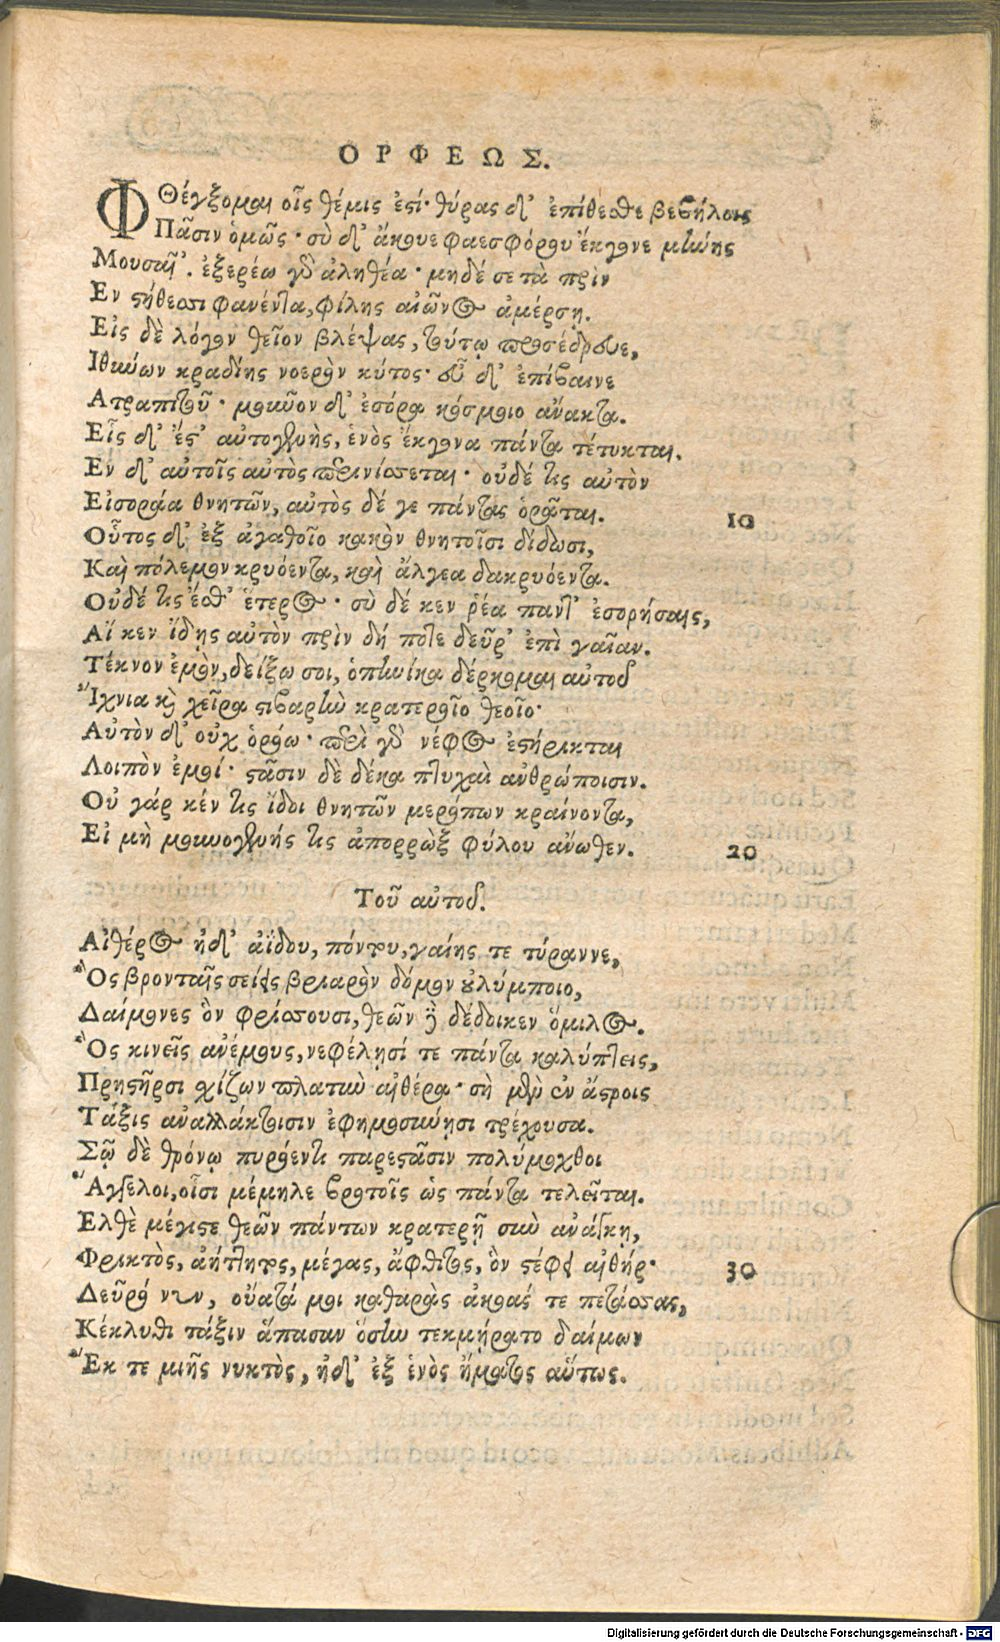 ΟΡΦΕΩΣ.
Φθέγξομαι οἷς θέμις ἐστί· θύρας δ' ἐπίθεσθε βεβήλοις
Πᾶσιν ὁμῶς· σὺ δ' ἄκουε φαεσφόρου ἔκγονε μήνης
Μουσαῖ'. ἐξερέω γὰρ ἀληθέα· μηδέ σε τὰ πρὶν
Εν στήθεσσι φανέντα, φίλης αἰῶνος ἀμέρσῃ.
Εἰς δὲ λόγον θεῖον βλέψας, τούτῳ προσέδρευε,
Ιθύνων κραδίης νοερὸν κύτος· εὖ δ' ἐπίβαινε
Ατραπιτοῦ· μοῦνον δ' ἐσόρα κόσμοιο ἄνακτα.
Εἷς δ' ἔστ' αὐτογενὴς, ἑνὸς ἔκγονα πάντα τέτυκται.
Εν δ' αὐτοῖς αὐτὸς περινίσσεται· οὐδέ τις αὐτὸν
Εἰσοράα θνητῶν, αὐτὸς δέ γε πάντας ὁρᾶται. 10
Οὗτος δ' ἐξ ἀγαθοῖο κακὸν θνητοῖσι δίδωσι,
Καὶ πόλεμον κρυόεντα, καὶ ἄλγεα δακρυόεντα.
Οὐδέ τις ἔσθ' ἕτερος· σὺ δέ κεν ῥέα πάντ' ἐσορήσαις,
Αἴ κεν ἴδῃς αὐτὸν πρὶν δή ποτε δεῦρ' ἐπὶ γαῖαν.
Τέκνον ἐμὸν, δείξω σοι, ὁπηνίκα δέρκομαι αὐτοῦ
Ἴχνια καὶ χεῖρα στιβαρὴν κρατεροῖο θεοῖο·
Αὐτὸν δ' οὐχ ὁρόω· περὶ γὰρ νέφος ἐστήρικται
Λοιπὸν ἐμοί· στᾶσιν δὲ δέκα πτυχαὶ ἀνθρώποισιν.
Οὐ γάρ κέν τις ἴδοι θνητῶν μερόπων κραίνοντα,
Εἰ μὴ μουνογενής τις ἀπορρὼξ φύλου ἄνωθεν. 20
Τοῦ αὐτοῦ.
Αἰθέρος ἠδ' ἀΐδου, πόντου, γαίης τε τύραννε,
Ὃς βρονταῖς σείεις βριαρὸν δόμον οὐλύμποιο,
Δαίμονες ὃν φρίσσουσι, θεῶν δὲ δέδοικεν ὅμιλος.
Ὃς κινεῖς ἀνέμους, νεφέλησί τε πάντα καλύπτεις,
Πρηστῆρσι σχίζων πλατὺν αἰθέρα· σὴ μὲν ἐν ἄστροις
Τάξις ἀναλλάκτοισιν ἐφημοσύνησι τρέχουσα.
Σῷ δὲ θρόνῳ πυρόεντι παρεστᾶσιν πολύμοχθοι
Ἄγγελοι, οἷσι μέμηλε βροτοῖς ὡς πάντα τελεῖται.
Ελθὲ μέγιστε θεῶν πάντων κρατερῇ σὺν ἀνάγκῃ,
Φρικτὸς, ἀήττητος, μέγας, ἄφθιτος, ὃν στέφει αἰθήρ· 30
Δεῦρό νυν, οὔατά μοι καθαρὰς ἀκοάς τε πετάσσας,
Κέκλυθι τάξιν ἅπασαν ὅσην τεκμήρατο δαίμων
Ἔκ τε μιῆς νυκτὸς, ἠδ' ἐξ ἑνὸς ἤματος αὕτως.
Digitalisierung gefördert durch die Deutsche Forschungsgemeinschaft - DFG